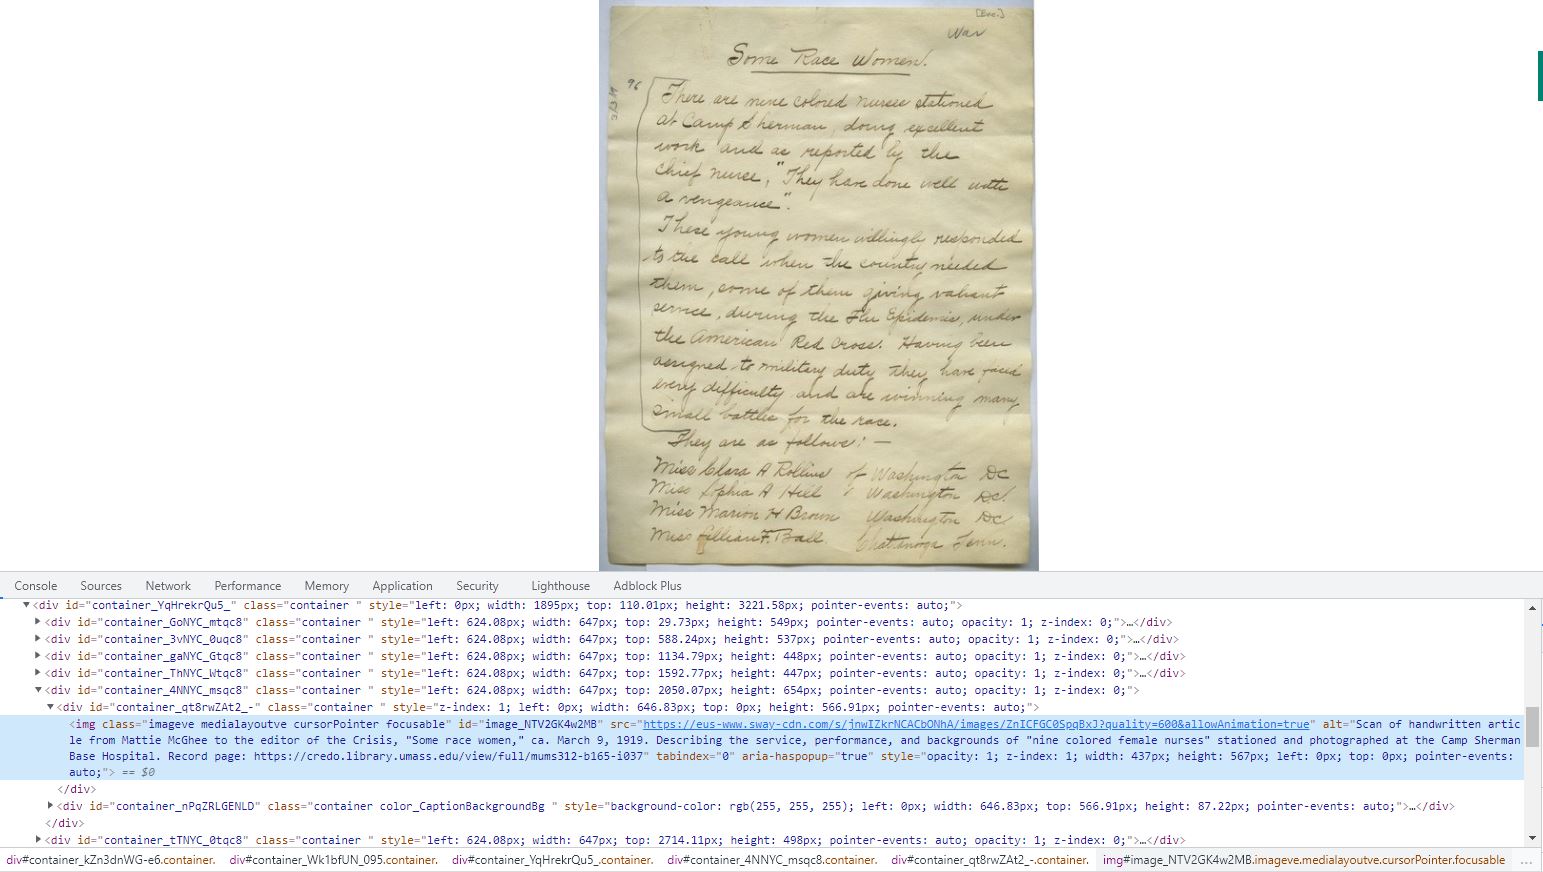 [Enc.]
War
Some Race Women.
96
3/13/19
There are nine colored nurses stationed
at Camp Sherman, doing excellent
work and as reported by the
Chief nurse, "They have done well with
a vengeance".
These young women willingly responded
to the call when the country needed
them, some of them giving valiant
service, during the Flu Epidemic, under
the American Red Cross. Having been
assigned to military duty they have faced
every difficulty and are winning many
small battles for the race.
They are as follows: —
Miss Clara A Rollins of Washington DC
Miss Sophia A Hill " Washington DC.
Miss Marion H Brown Washington DC
Miss Lillian F. Ball Chatanooga Tenn.
Console Sources Network Performance Memory Application Security Lighthouse Adblock Plus
▼<div id="container_YqHrekrQu5_" class="container " style="left: 0px; width: 1895px; top: 110.01px; height: 3221.58px; pointer-events: auto;">
▶<div id="container_GoNYC_mtqc8" class="container " style="left: 624.08px; width: 647px; top: 29.73px; height: 549px; pointer-events: auto; opacity: 1; z-index: 0;">…</div>
▶<div id="container_3vNYC_0uqc8" class="container " style="left: 624.08px; width: 647px; top: 588.24px; height: 537px; pointer-events: auto; opacity: 1; z-index: 0;">…</div>
▶<div id="container_gaNYC_Gtqc8" class="container " style="left: 624.08px; width: 647px; top: 1134.79px; height: 448px; pointer-events: auto; opacity: 1; z-index: 0;">…</div>
▶<div id="container_ThNYC_Wtqc8" class="container " style="left: 624.08px; width: 647px; top: 1592.77px; height: 447px; pointer-events: auto; opacity: 1; z-index: 0;">…</div>
▼<div id="container_4NNYC_msqc8" class="container " style="left: 624.08px; width: 647px; top: 2050.07px; height: 654px; pointer-events: auto; opacity: 1; z-index: 0;">
▼<div id="container_qt8rwZAt2_-" style="z-index: 1; left: 0px; width: 646.83px; top: 0px; height: 566.91px; pointer-events: auto;">
<img class="imageve medialayoutve cursorPointer focusable" id="image_NTV2GK4w2MB" src="https://eus-www.sway-cdn.com/s/jnwIZkrNCACbONhA/images/ZnICFGC0SpqBxJ?quality=600&allowAnimation=true" alt="Scan of handwritten artic
le from Mattie McGhee to the editor of the Crisis, "Some race women," ca. March 9, 1919. Describing the service, performance, and backgrounds of "nine colored female nurses" stationed and photographed at the Camp Sherman
Base Hospital. Record page: https://credo.library.umass.edu/view/full/mums312-b165-i037" tabindex="0" aria-haspopup="true" style="opacity: 1; z-index: 1; width: 437px; height: 567px; left: 0px; top: 0px; pointer-events:
auto;"> == $0
</div>
▶<div id="container_nPqZRLGENLD" class="container color_CaptionBackgroundBg " style="background-color: rgb(255, 255, 255); left: 0px; width: 646.83px; top: 566.91px; height: 87.22px; pointer-events: auto;">…</div>
</div>
▶<div id="container_tTNYC_0tqc8" class="container " style="left: 624.08px; width: 647px; top: 2714.11px; height: 498px; pointer-events: auto; opacity: 1; z-index: 0;">…</div>
div#container_kZn3dnWG-e6.container. div#container_Wk1bfUN_095.container. div#container_YqHrekrQu5_.container. div#container_4NNYC_msqc8.container. div#container_qt8rwZAt2_-.container. img#image_NTV2GK4w2MB.imageve.medialayoutve.cursorPointer.focusable ...